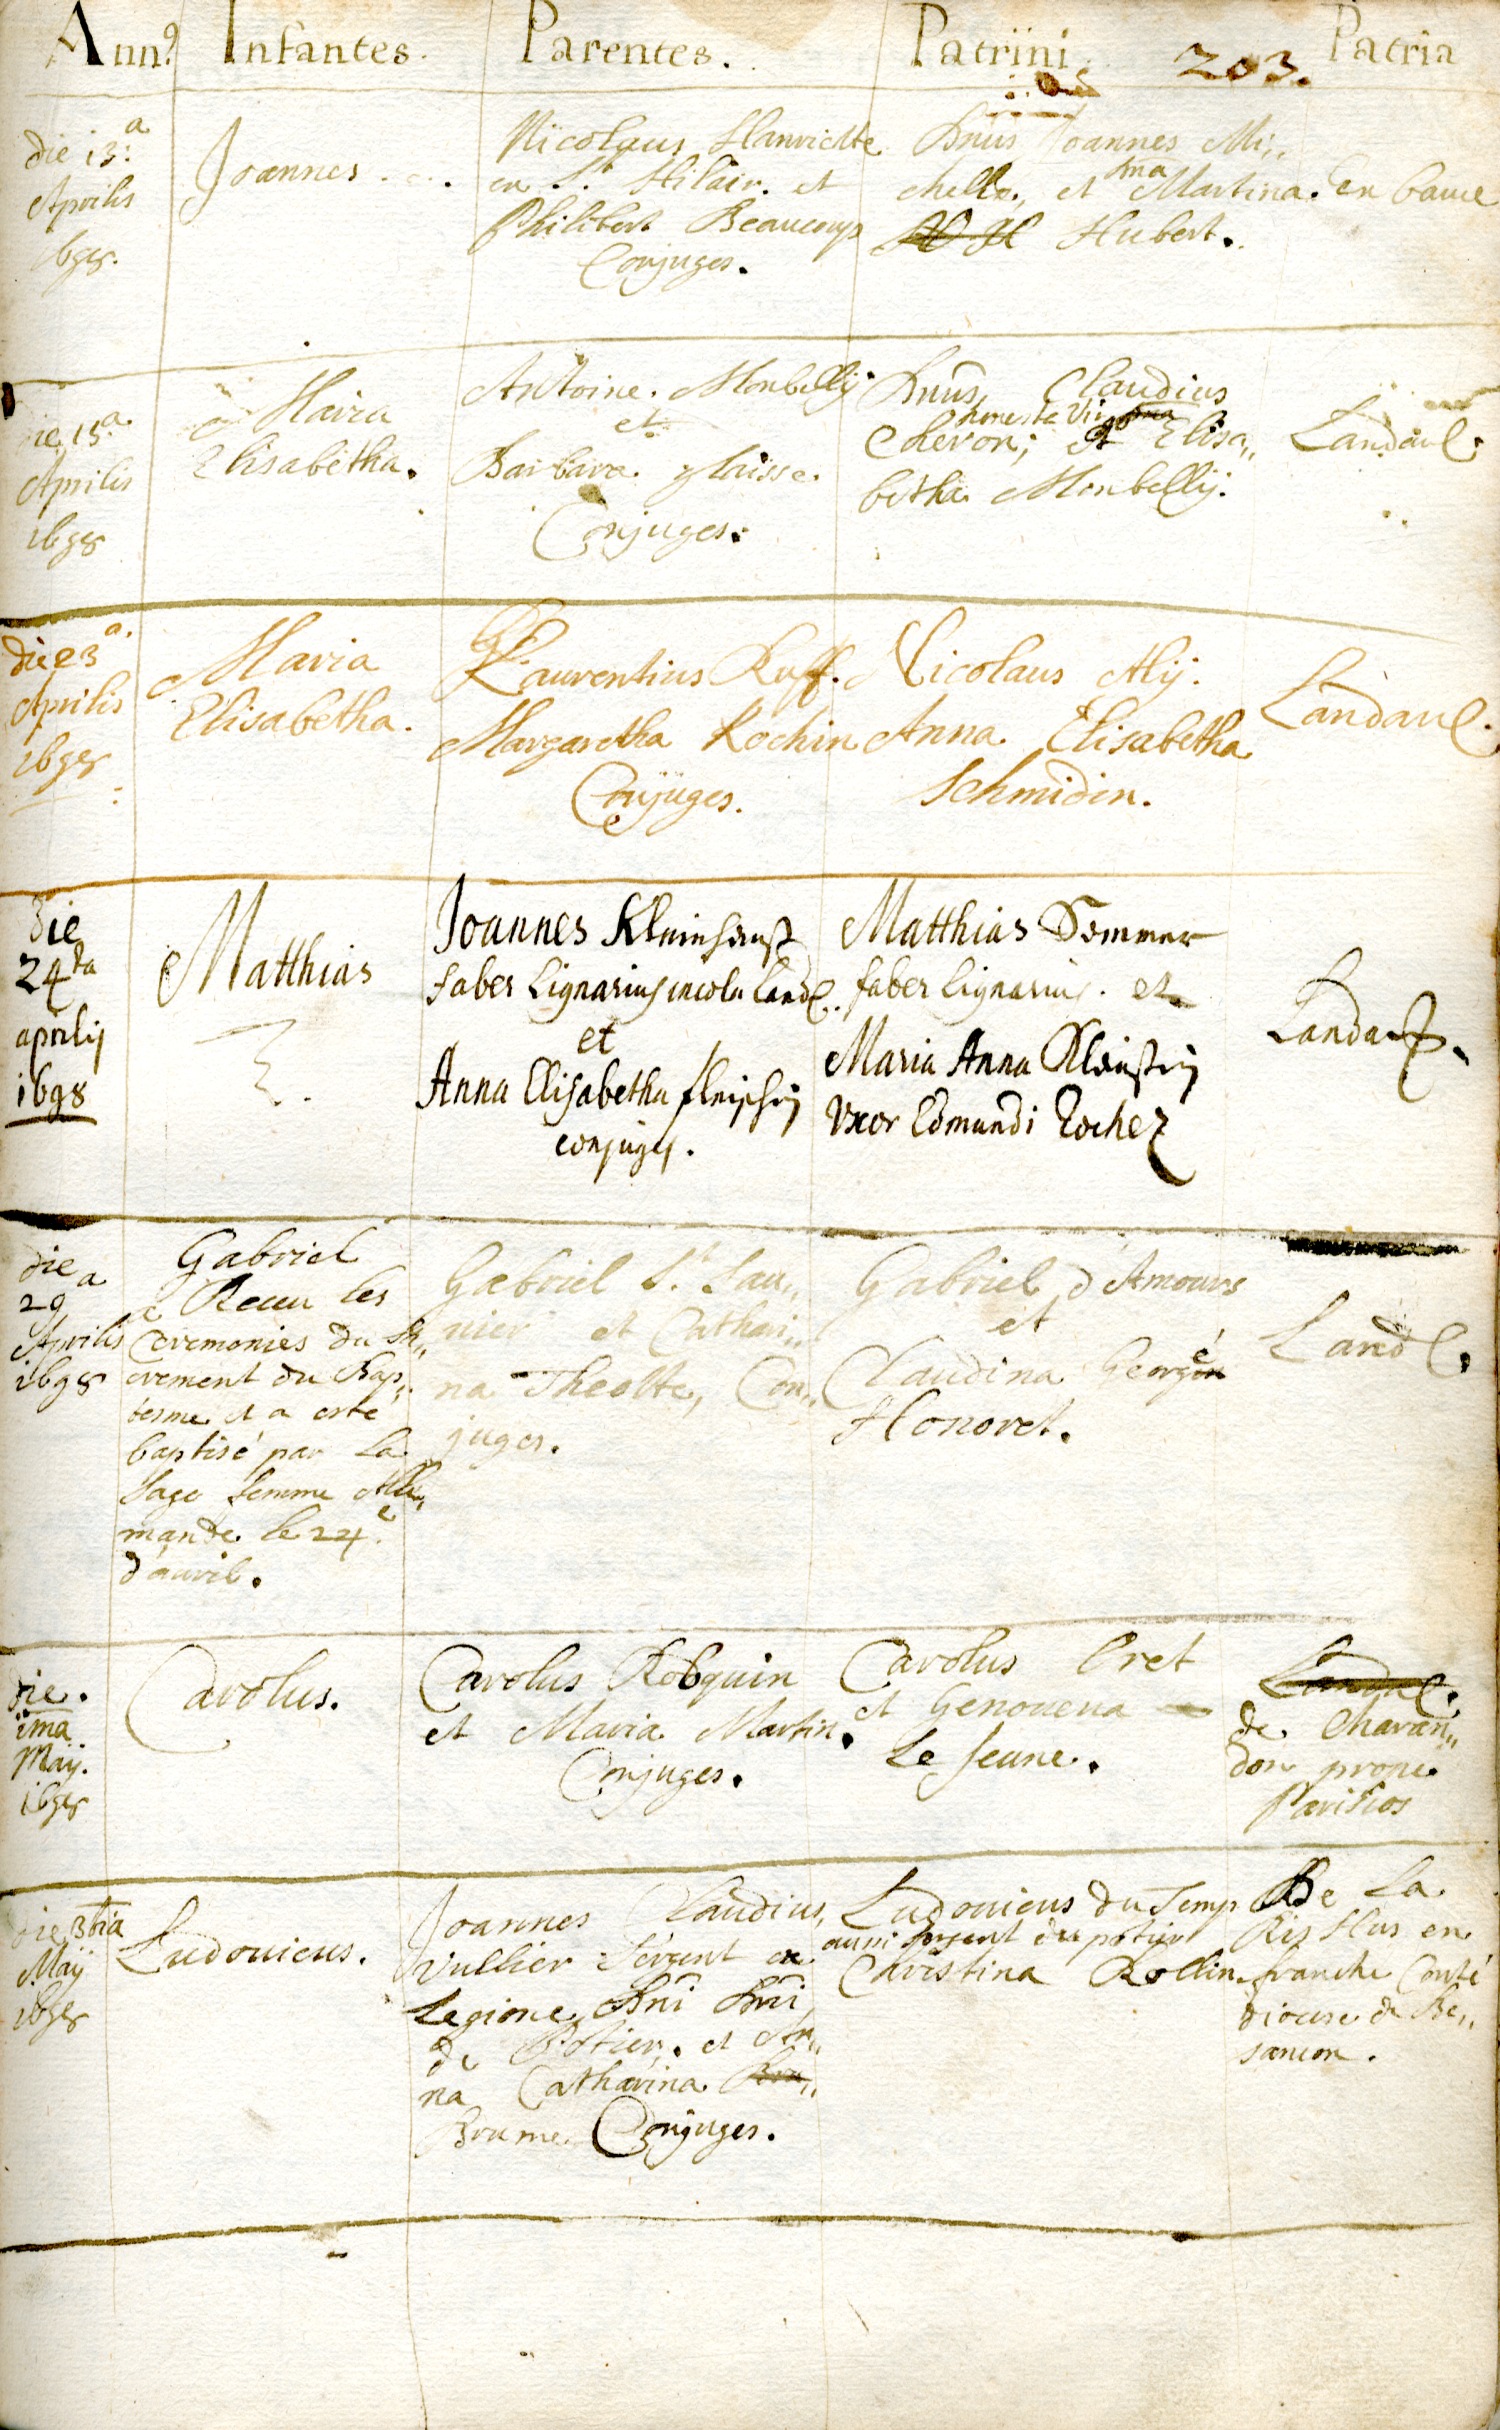 Ann9 Infantes. Parentes. Patrini. 203. Patria
die 13.a
Aprilis
1698.
Joannes . . .
Nicolaus Hanriotte
en St. Hilair. et
Philibert Beaucoup
Conjuges.
Dnus Joannes Mi,,
chelle, et Dna Martina
Hubert.
en baue
die 15.a
Aprilis
1698
Maria
Elisabetha.
Antoine. Monbellij
et
Barbara glaisse.
Conjuges.
Dnus Claudius
Cheron; honesta Vir Elisa,,
betha Monbellij.
Landau.
die 23a.
Aprilis
1698
Maria
Elisabetha.
Laurentius Ruff.
Margaretha Kochin
Conjuges.
Nicolaus Alij.
Anna Elisabetha
Schmidin.
Landau.
Die
24da
aprilij
1698
Matthias
Joannes Kleinhanß
faber Lignarius incola Land.
et
Anna Elisabetha fleischerin
conjuges.
Matthias Sommer
faber lignarius. et
Maria Anna
Uxor Edmundi Rochez
Landau.
die
29a
Aprilis
1698
Gabriel
a Receu les
Ceremonies du Sa,,
crement du Bap,,
tesme et a esté
baptisé par la
Sage femme Alle,,
mande le 24e.
d'auril.
Gabriel S. Sau,,
nier et Cathari,,
na Theolte, Con,,
juges.
Gabriel d'Amours
et
Claudina George
Honoret.
Land.
die.
ima
Maij.
1698
Carolus.
Carolus Robquin
et Maria Martin.
Conjuges.
Carolus Oret
et Genoueua
Le Jeune.
Landau.
de Charan,,
don prope
Parisios
die 3tia
Maij
1698
Ludouicus.
Joannes Claudius,
Vullier Sergent ex
Legione Dni Dni
de Potier. et An,,
na Catharina
Broume Conjuges.
Ludouicus du Temp
aussi sergent du potier
Christina Rollin.
De La
Ris Hus en
franche Conté
diocese de Be,,
sancon.